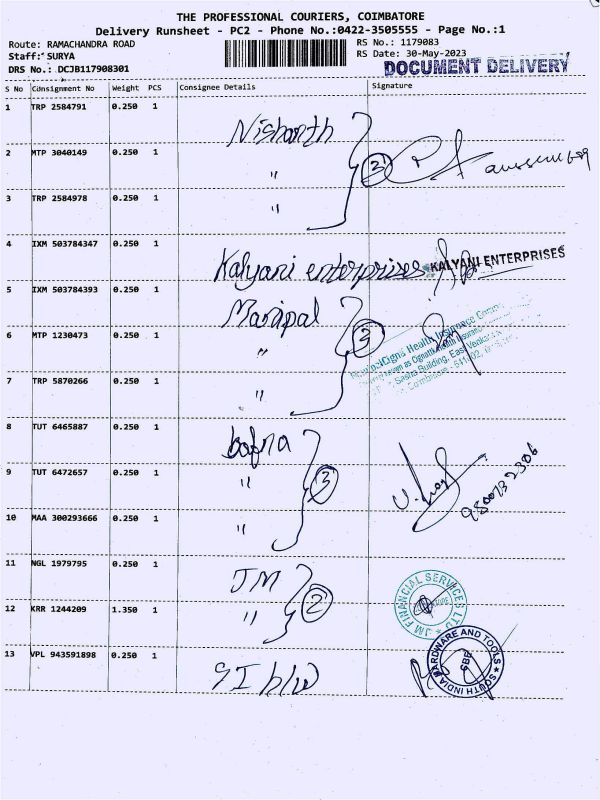 THE PROFESSIONAL COURIERS, COIMBATORE
Delivery Runsheet - PC2 - Phone No.:0422-3505555 - Page No.:1
Route: RAMACHANDRA ROAD
Staff: SURYA
DRS No.: DCJB117908301
RS No.: 1179083
RS Date: 30-May-2023
DOCUMENT DELIVERY
S No Consignment No Weight PCS Consignee Details Signature
1 TRP 2584791 0.250 1 Nishanth
2 MTP 3040149 0.250 1 " 3
3 TRP 2584978 0.250 1 "
4 IXM 503784347 0.250 1 Kalyani enterprises KALYANI ENTERPRISES
5 IXM 503784393 0.250 1 Manipal
6 MTP 1230473 0.250 1 " 3
7 TRP 5870266 0.250 1 "
Health Insurance
Sasha Building, East Venkata
Coimbatore - 641 002
8 TUT 6465887 0.250 1 bafna
9 TUT 6472657 0.250 1 " 3
10 MAA 300293666 0.250 1 "
9800732306
11 NGL 1979795 0.250 1 JM
12 KRR 1244209 1.350 1 " 2
JM FINANCIAL SERVICES LTD
13 VPL 943591898 0.250 1 SI h/w
SOUTH INDIA HARDWARE AND TOOLS
CBE